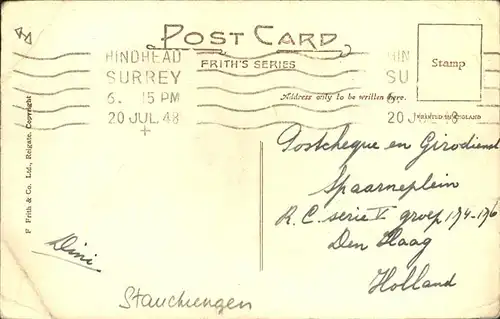 POST CARD
FRITH'S SERIES
Stamp
Address only to be written here.
PRINTED IN ENGLAND
HINDHEAD
SURREY
6. 15 PM
20 JUL 48
HIN
SU
20 JUL 48
F Frith & Co. Ltd., Reigate. Copyright
Postcheque en Girodienst
Spaarneplein
R.C. serie V groep 174-176
Den Haag
Holland
Dini